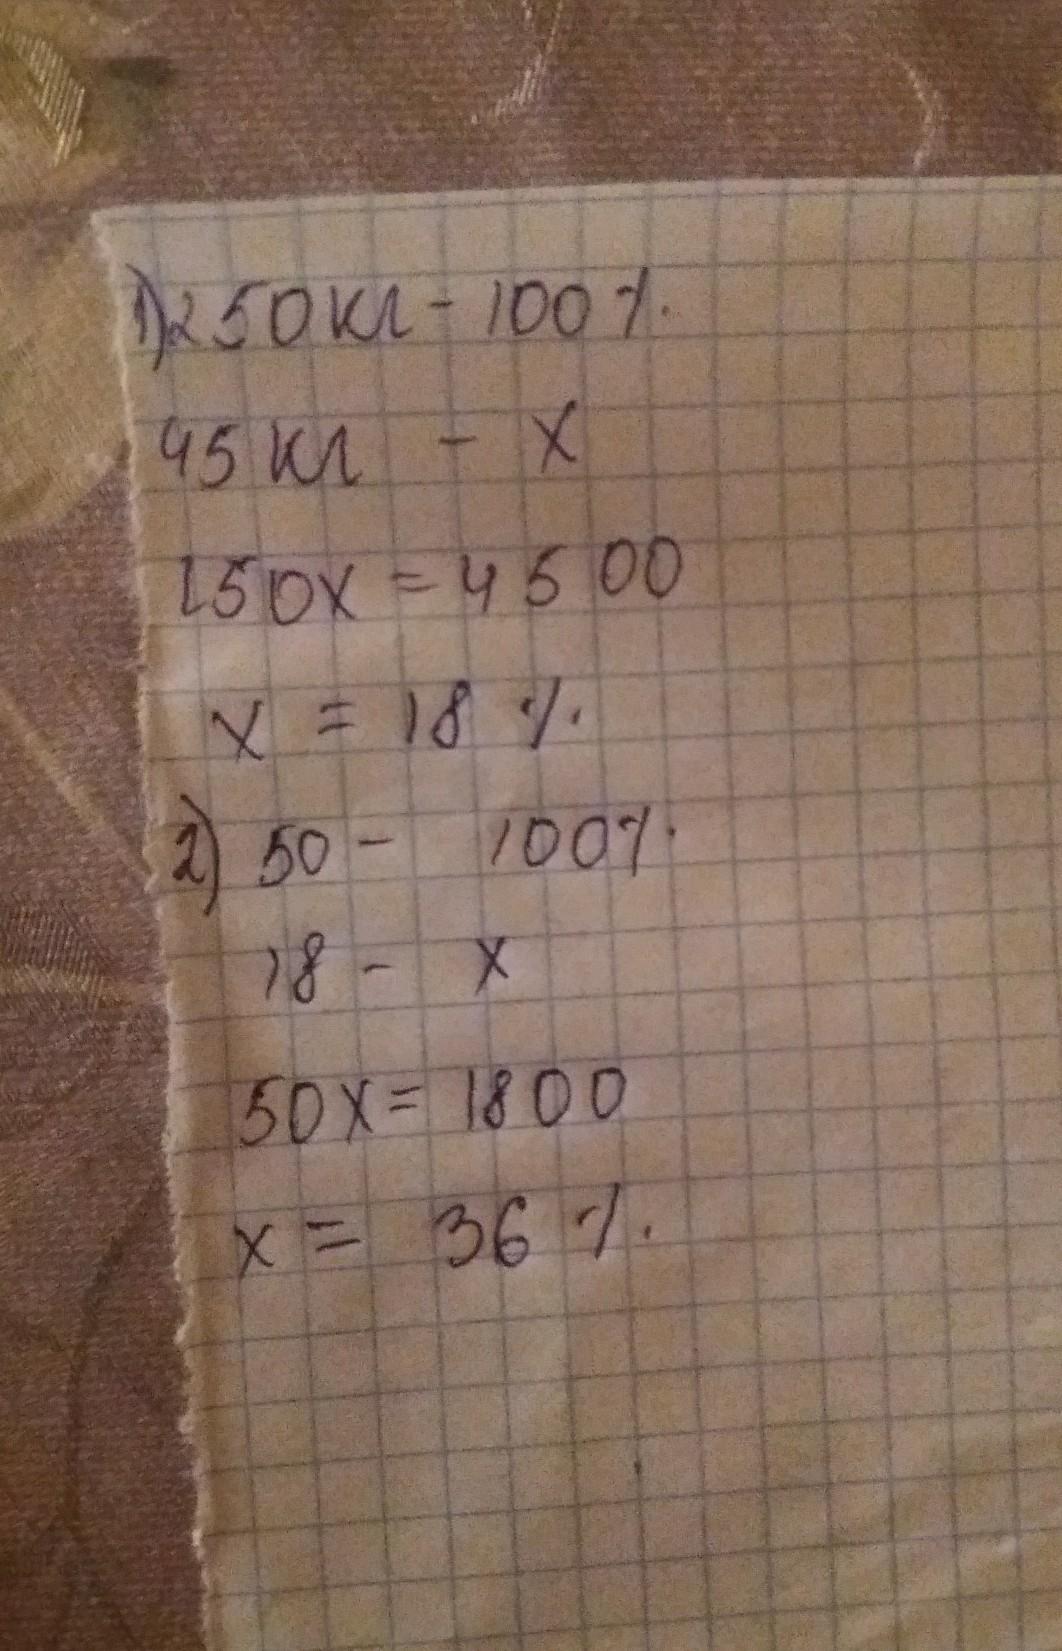 1) 250 кг - 100 %.
45 кг - x
250x = 4500
x = 18 %.
2) 50 - 100%.
18 - x
50x = 1800
x = 36 %.